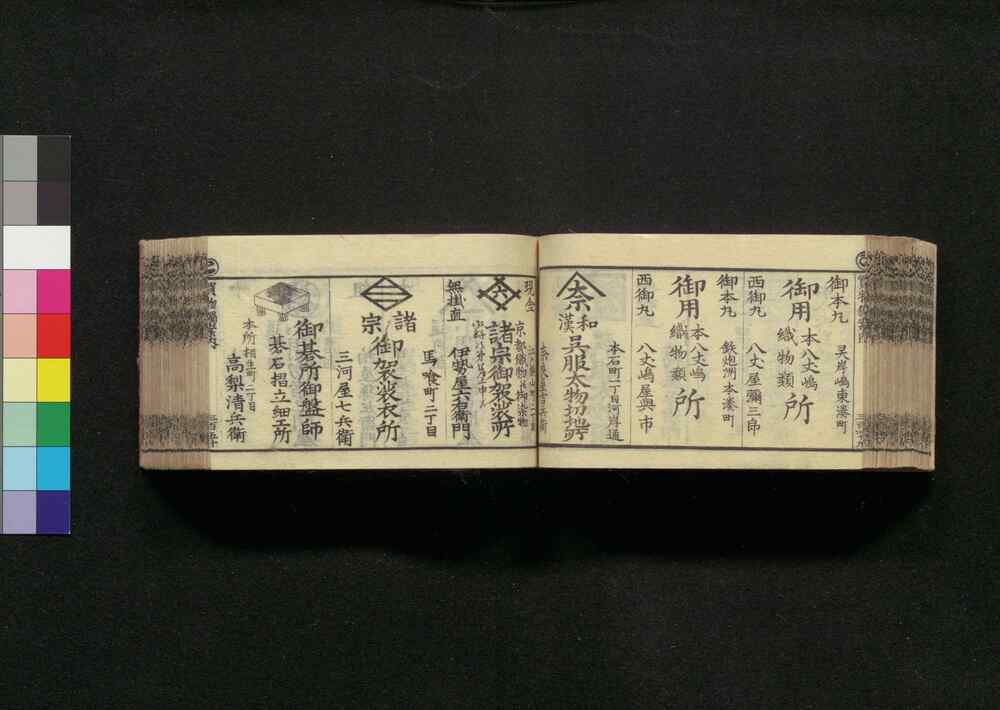 御本丸
西御丸
御用
本八丈嶋
織物類
所
霊岸嶋東湊町
八丈屋彌三郎
御本丸
西御丸
御用
本八丈嶋
織物類
所
鉄炮洲本湊町
八丈嶋屋與市
奈
和
漢
呉服太物切地所
本石町一丁目河岸通
現金
無掛直
京都織物
諸宗御袈裟所
馬喰町二丁目
伊勢屋六右衛門
諸
宗
御袈裟衣所
三河屋七兵衛
御碁所御盤師
碁石摺立細工所
本所相生町二丁目
高梨清兵衛